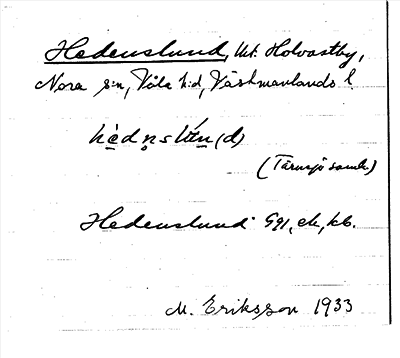 Hedenslund, Ut. Holvastby,
Nora s:n, Våla h:d, Västmanlands l.
(Tärnsjö saml.)
Hedenslund Ggl, ek, kb.
M. Eriksson 1933